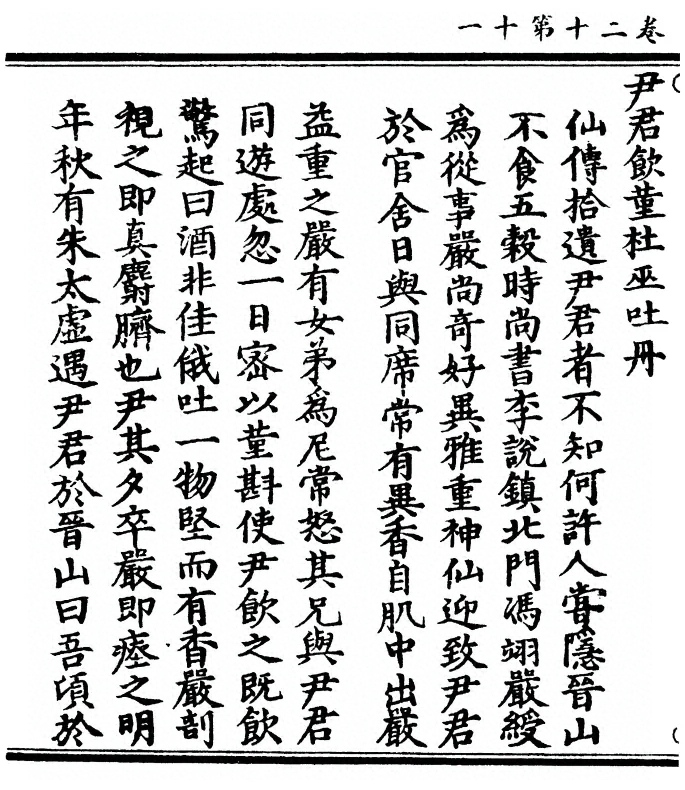 卷二十第十一
尹君飲菫杜巫吐丹
仙傳拾遺尹君者不知何許人嘗隱晉山
不食五穀時尚書李說鎮北門馮翊嚴綬
爲從事嚴尚奇好異雅重神仙迎致尹君
於官舍日與同席常有異香自肌中出嚴
益重之嚴有女弟爲尼常怒其兄與尹君
同遊處忽一日密以菫斟使尹飲之既飲
驚起曰酒非佳俄吐一物堅而有香嚴剖
視之即真麝臍也尹其夕卒嚴即瘞之明
年秋有朱太虛遇尹君於晉山曰吾頃於